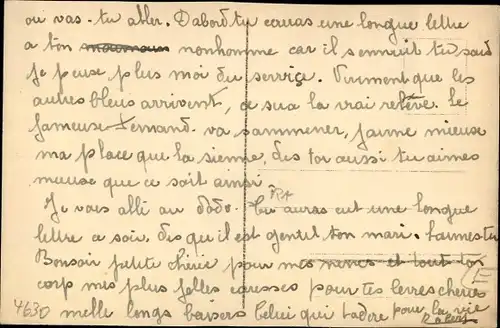 ou vas-tu aller. Dabord tu ecriras une longue lettre
a ton nonhomme car il sennuit tu sais
Je peuse plus moi du serviçe. Viviment que les
autres bleus arrivent, ce sera la vrai relève. Le
fameuse Fernand va sammener, jaime mieuse
ma place que la sienne, des toi aussi tu aimes
mieuse que ce soit ainsi
Je vais allé au dodo. Tu auras eut une longue
FRA
lettre ce soir, dis qu'il est gentil ton mari. Laimes tu
Bonsoir petite chérie pour mes nuses et tout ton
corp mes plus folles caresses pour tes levres cheries
mille longs baisers Celui qui tadore pour la vie
4630